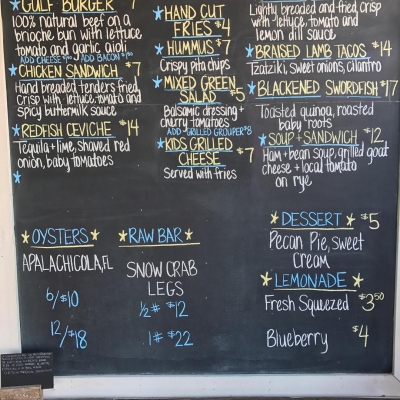 GULF BURGER
100% natural beef on a
brioche bun with lettuce
tomato and garlic aioli
ADD CHEESE ADD BACON
CHICKEN SANDWICH 7
Hand breaded tenders fried,
crisp with lettuce, tomato and
spicy buttermilk sauce
REDFISH CEVICHE $14
Tequila + lime, shaved red
onion, baby tomatoes
HAND CUT
FRIES $4
HUMMUS $7
Crispy pita chips
MIXED GREEN
SALAD $5
Balsamic dressing +
cherry tomatoes
ADD-GRILLED GROUPER $8
KIDS GRILLED
CHEESE $7
Served with fries
Lightly breaded and fried, crisp
with lettuce, tomato and
lemon dill sauce
BRAISED LAMB TACOS $14
Tzatziki, sweet onions, cilantro
BLACKENED SWORDFISH $17
Toasted quinoa, roasted
baby roots
SOUP + SANDWICH $12
Ham + bean soup, grilled goat
cheese + local tomato
on rye
OYSTERS
APALACHICOLA, FL
6/$10
12/$18
RAW BAR
SNOW CRAB
LEGS
½# $12
1# $22
DESSERT $5
Pecan Pie, sweet
Cream
LEMONADE
Fresh Squeezed $3.50
Blueberry $4